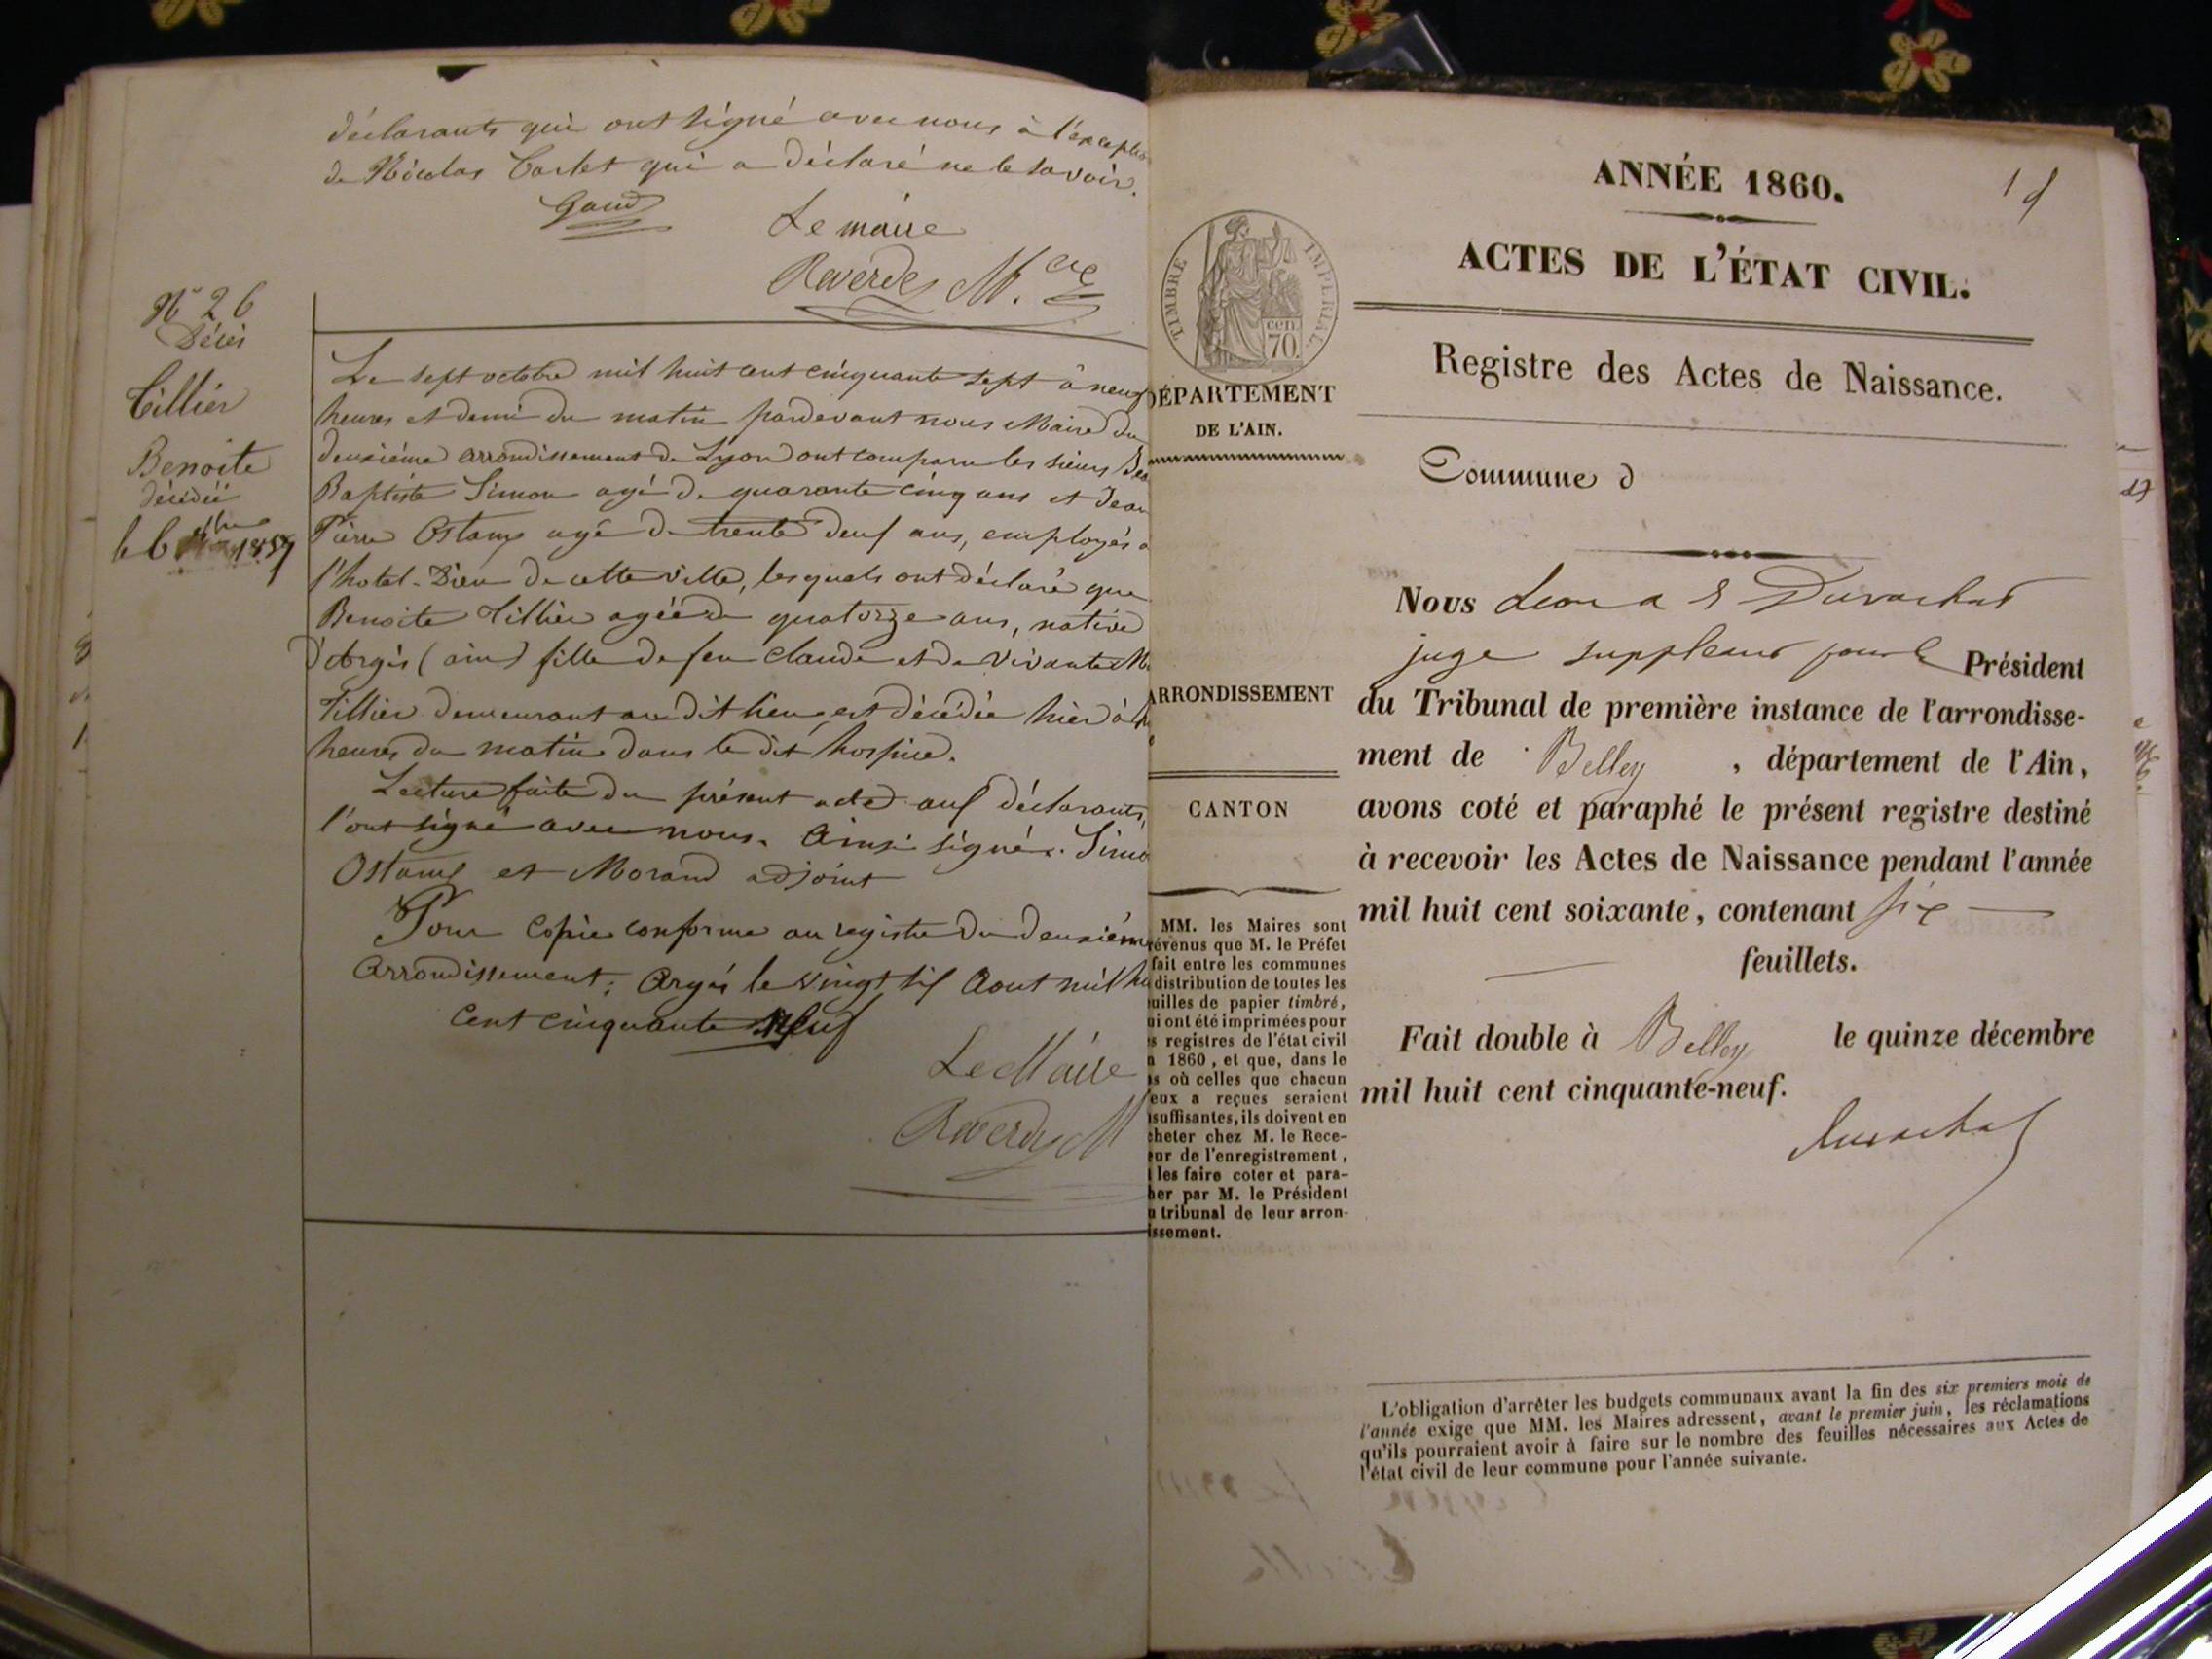 déclarants qui ont signé avec nous à l'exception
de Nicolas Carlet qui a déclaré ne le savoir.
Le maire
N° 26
Décès
Tillier
Benoite
décédée
le 6
Le sept octobre mil huit cent cinquante sept à neuf
heures et demi du matin pardevant nous Maire du
deuxième arrondissement de Lyon ont comparu les sieurs
Baptiste Simon agé de quarante cinq ans et Jean
Pierre Ostamp agé de trente deuf ans, employés a
l'hotel-Dieu de cette ville, lesquels ont déclaré que
Benoite Tillier agée de quatorze ans, native
d'Argis (ain) fille de feu Claude et de vivante
Tillier demeurant au dit lieu est décédée hier à
heures du matin dans le dit hospice.
Lecture faite du présent acte auf déclarants,
l'ont signé avec nous. Ainsi signé. Simo
et Morand adjoint
Pour Copie conforme au registre du deuxième
Arrondissement, Argis le vingt sif Aout mil hu
Cent cinquante Neuf
Le Maire
ANNÉE 1860.
ACTES DE L'ÉTAT CIVIL.
TIMBRE IMPERIAL
70 cen
Registre des Actes de Naissance.
DÉPARTEMENT
DE L'AIN.
Commune d
ARRONDISSEMENT
CANTON
MM. les Maires sont
révenus que M. le Préfet
fait entre les communes
distribution de toutes les
uilles de papier timbré,
ui ont été imprimées pour
s registres de l'état civil
n 1860, et que, dans le
s où celles que chacun
'eux a reçues seraient
suffisantes, ils doivent en
cheter chez M. le Rece-
eur de l'enregistrement,
t les faire coter et para-
her par M. le Président
u tribunal de leur arron-
issement.
Nous
juge suppleant pour le Président
du Tribunal de première instance de l'arrondisse-
ment de Belley, département de l'Ain,
avons coté et paraphé le présent registre destiné
à recevoir les Actes de Naissance pendant l'année
mil huit cent soixante, contenant six
feuillets.
Fait double à Belley le quinze décembre
mil huit cent cinquante-neuf.
L'obligation d'arrêter les budgets communaux avant la fin des six premiers mois de
l'année exige que MM. les Maires adressent, avant le premier juin, les réclamations
qu'ils pourraient avoir à faire sur le nombre des feuilles nécessaires aux Actes de
l'état civil de leur commune pour l'année suivante.